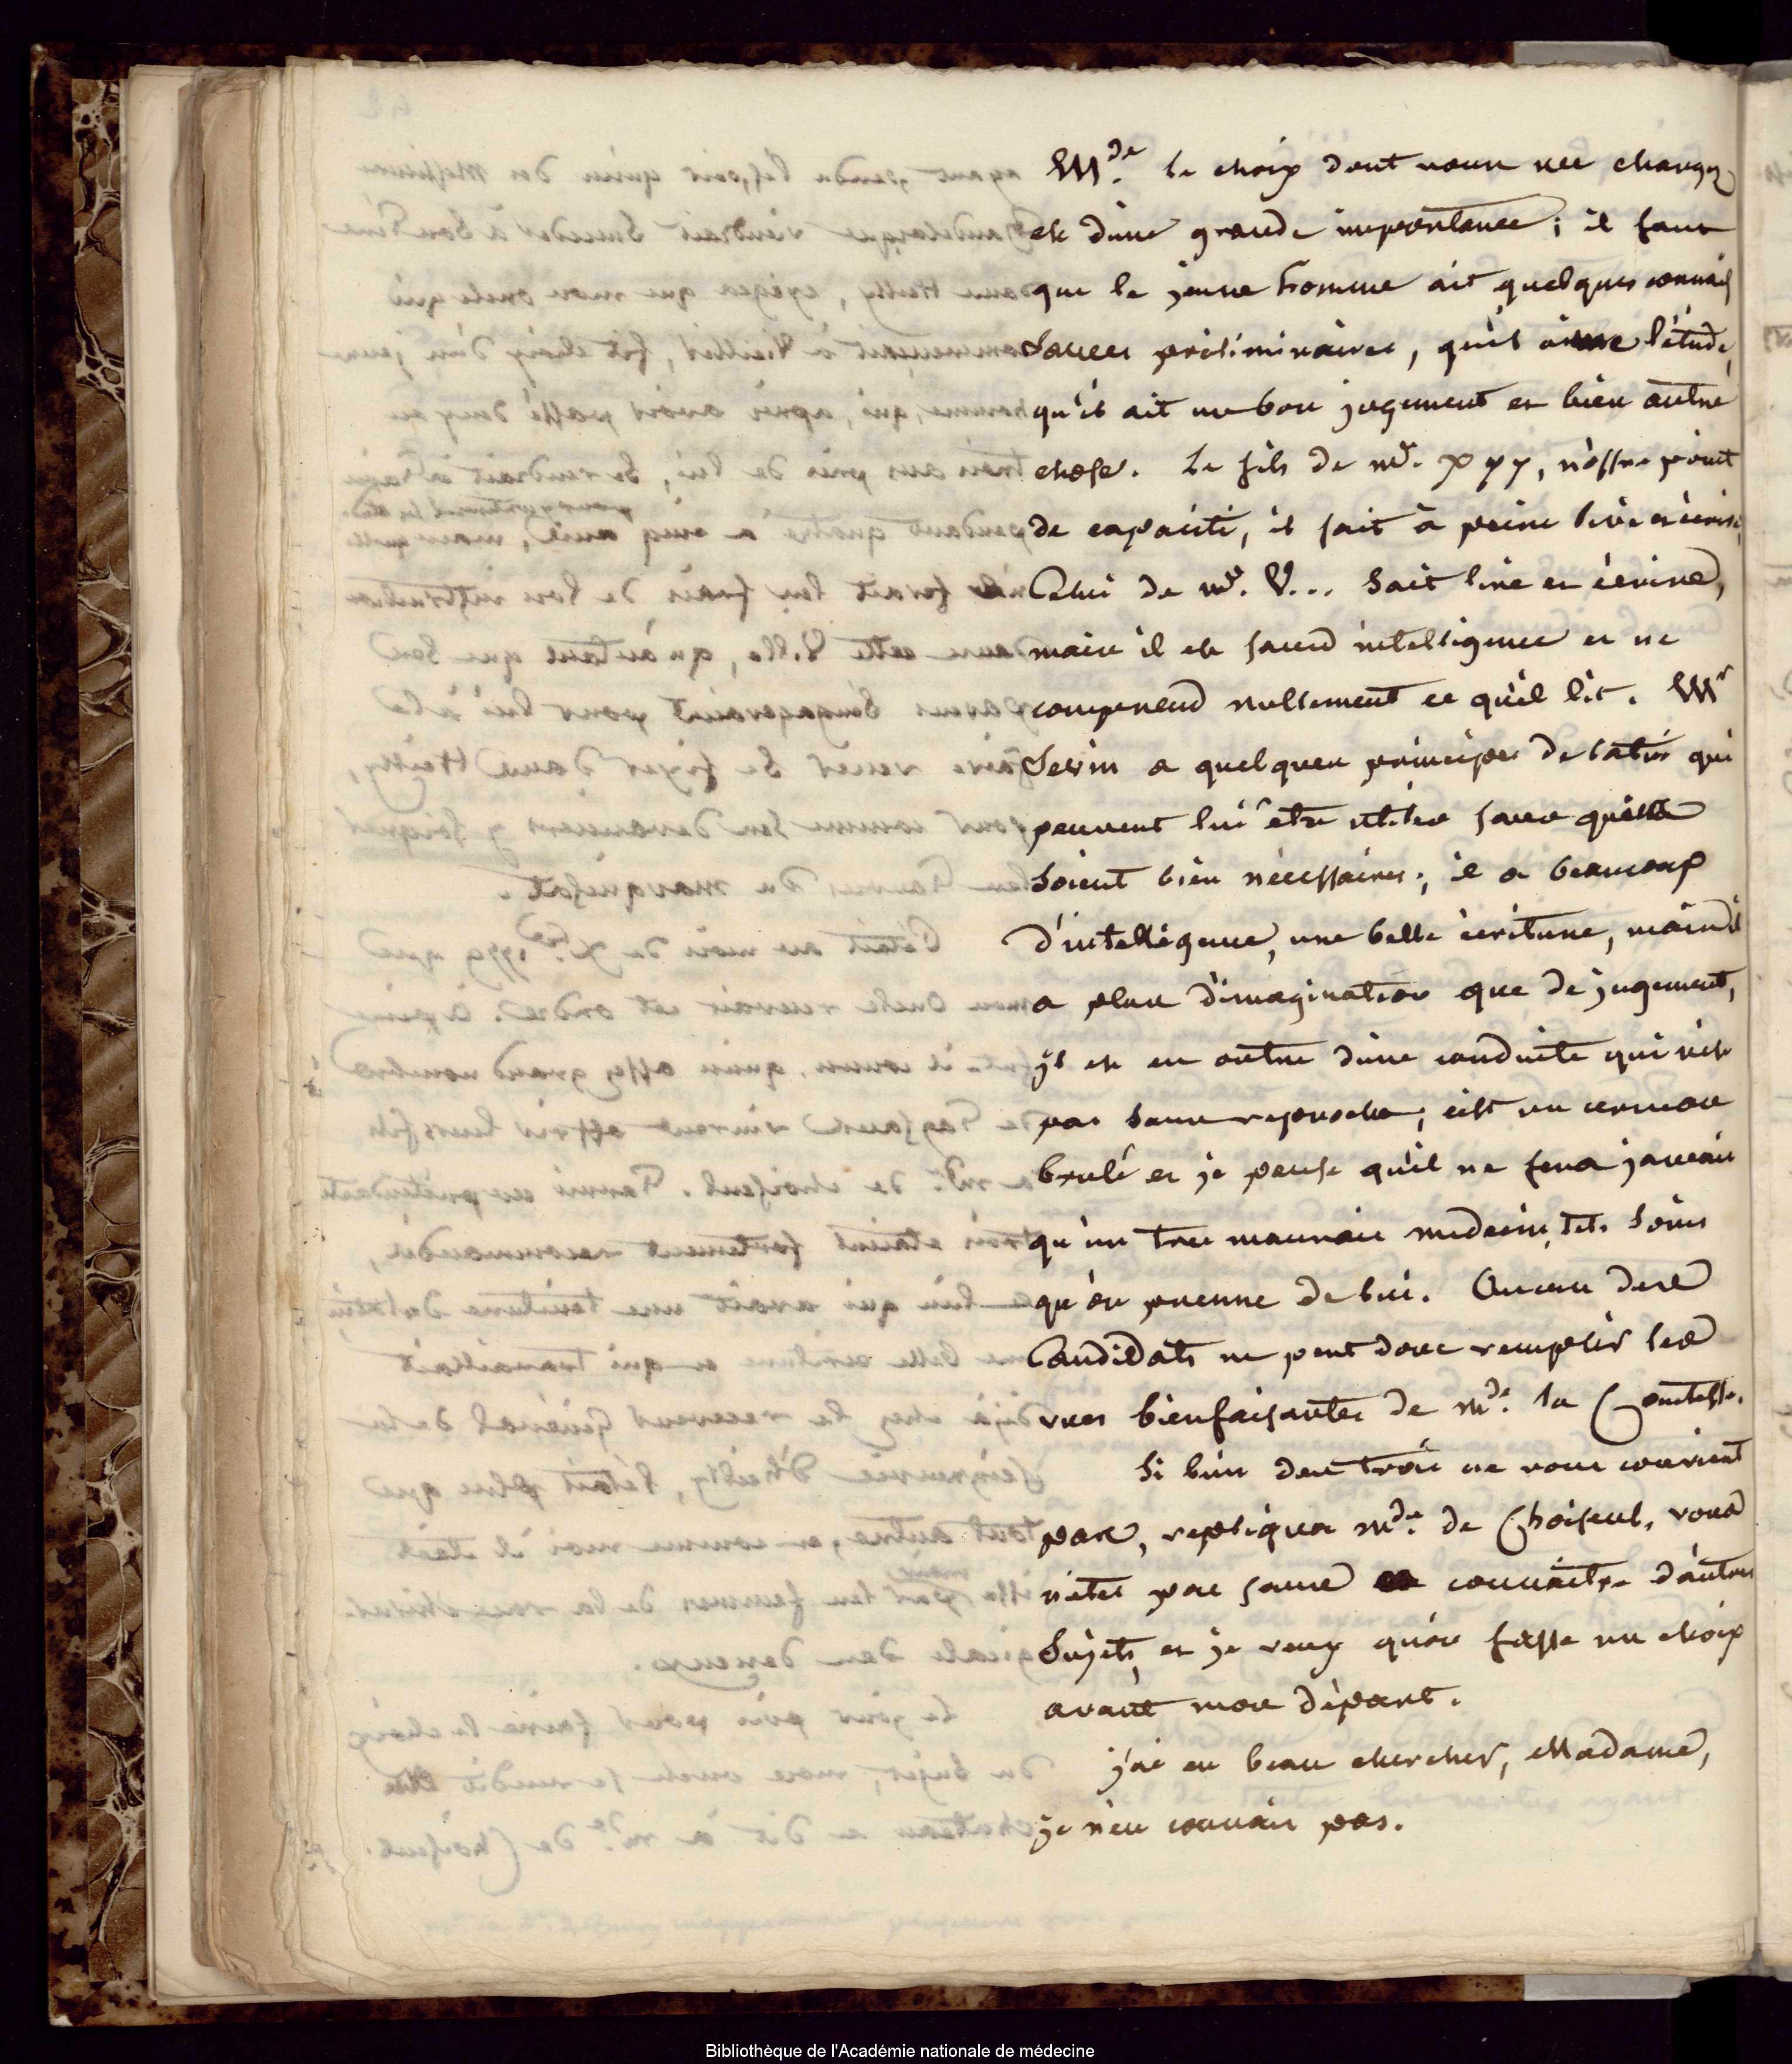 Mde. le choix dont vous me chargez
est d'une grande importance; il faut
que le jeune homme ait quelques connais
sances préliminaires, qu'il aime l'étude,
qu'il ait un bon jugement et bien autre
chose. Le fils de mr. xxx, n'offre point
de capacité, il sait à peine lire et écrire,
Celui de mr. V... Sait lire et écrire,
mais il est sans intelligence et ne
comprend nullement ce qu'il lit. Mr
Serin a quelques principes de latin qui
peuvent lui être utiles sans qu'ils
Soient bien nécessaires; il a beaucoup
d'intelligence, une belle écriture, mais il
a plus d'imagination que de jugement,
il est en outre d'une conduite qui n'est
pas sans reproche; c'est un cerveau
brulé et je pense qu'il ne fera jamais
qu'un tres mauvais medecin, tels Soins
qu'on prenne de lui. Aucun des
Candidats ne peut donc remplir les
vues bienfaisantes de mde. la Comtesse.
Si l'un des trois ne vous convient
pas, repliqua mde. de Choiseul, vous
n'êtes pas sans connaitre d'autres
Sujets, et je veux qu'on fasse un choix
avant mon départ.
j'ai eu beau chercher, Madame,
je n'en connais pas.
Bibliothèque de l'Académie nationale de médecine